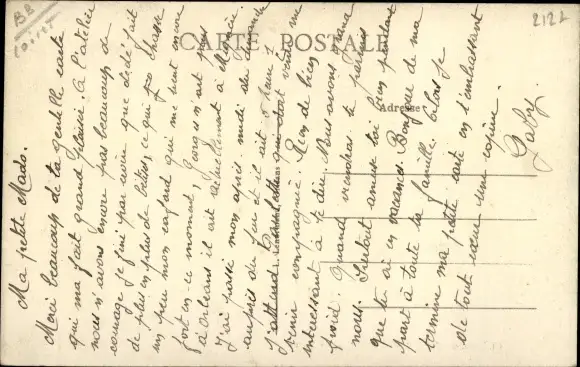 CARTE POSTALE
Adresse
2122
Ma petite Mado.
Merci beaucoup de ta gentille carte
qui m'a fait grand plaisir. à l'atelier
nous n'avons encore pas beaucoup de
courage je fini par avoir que dédé fait
de plus en plus de bêtises, ce qui me
un peu mon enfant qui me tient encore
fort en ce moment, Georges n'est plus
à Orléans il est actuellement à
J'ai passé mon après midi du dimanche
auprès du feu et il est 5 heures
J'attend qui doit venir me
tenir compagnie. Rien de bien
interessant à te dire. Nous avons grand
froid. Quand viendras te permis
nous. Surtout amuse toi bien pendant
que tu es en vacances. Bonjour de ma
part à toute ta famille. Alors je
termine ma petite carte en t'embrassant
de tout cœur une copine.
Gaby.